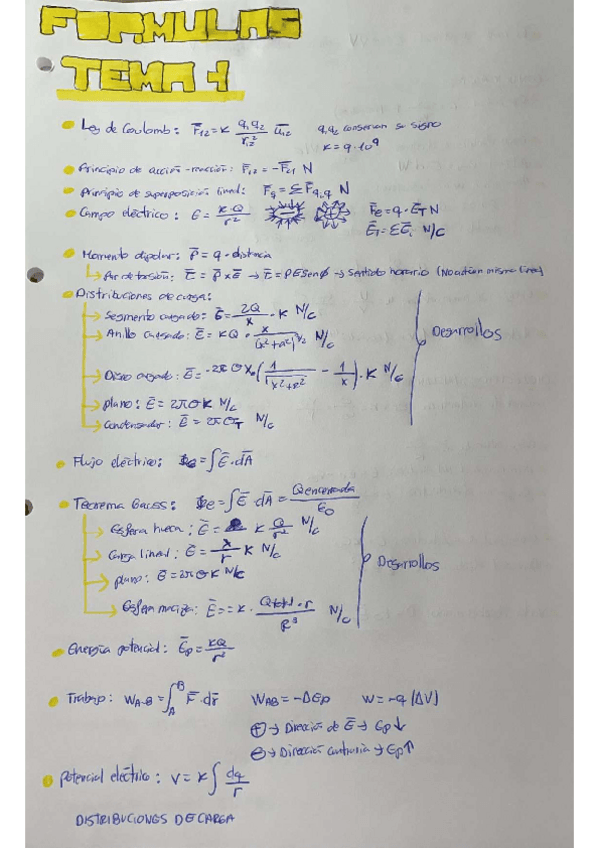 FORMULAS
TEMA 1
Ley de Coulomb: F̅₁₂ = K q₁q₂/r₁₂² u̅₁₂ q₁q₂ conservan su signo
K = 9·10⁹
Principio de acción-reacción: F̅₁₂ = -F̅₂₁ N
Principio de superposición lineal: F̅q = Σ F̅q,q N
Campo eléctrico: E = K·Q/r² F̅e = q·E̅T N
E̅T = Σ E̅i N/C
Momento dipolar: P̅ = q·distancia
Par de torsión: τ̅ = p̅ x E̅ → τ = PE Senφ → Sentido horario (No actúan misma línea)
Distribuciones de carga:
Segmento cargado: E̅ = 2Q/x · K N/C
Anillo cargado: E̅ = KQ · x/(x²+a²)^3/2 N/C
Desarrollos
Disco cargado: E̅ = -2π σ x (1/√(x²+R²) - 1/x) · K N/C
plano: E̅ = 2π σ K N/C
Condensador: E̅ = N/C
Flujo eléctrico: Φe = ∫ E̅·dA̅
Teorema Gauss: Φe = ∫ E̅·dA̅ = Qencerrada/ε₀
Esfera hueca: E̅ = K Q/r² N/C
Carga lineal: E̅ = λ/r K N/C
Desarrollos
plano: E̅ = 2πσK N/C
Esfera maciza: E̅ = K · Qtotal·r/R³ N/C
Energía potencial: E̅p = KQ/r²
Trabajo: W_A-B = ∫_A^B F̅·dr̅ W_AB = -ΔEp W = -q (ΔV)
⊕ → Dirección de E̅ → Ep↓
⊖ → Dirección contraria → Ep↑
Potencial eléctrico: V = K ∫ dq/r
DISTRIBUCIONES DE CARGA